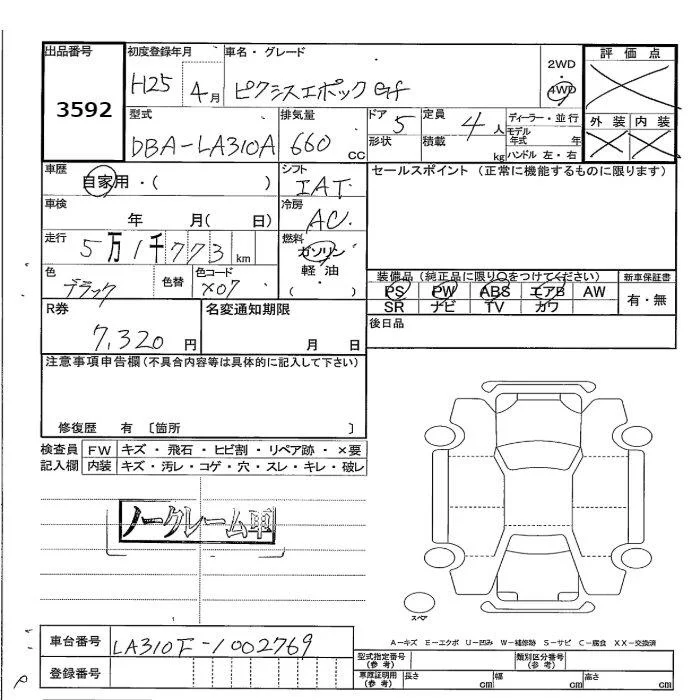 出品番号 3592
初度登録年月 H25 4月
車名・グレード ピクシスエポック Gf
2WD・4WD
評価点
外装 内装
型式 DBA-LA310A
排気量 660 cc
ドア 5
形状
定員 4人
積載 kg
ディーラー・並行
モデル年式 年
ハンドル 左・右
車歴 自家用・( )
シフト IAT
セールスポイント (正常に機能するものに限ります)
車検 年 月( 日)
冷房 AC
走行 5万1千773km
燃料 ガソリン 軽油 ( ・ )
色 ブラック 色替
色コード X07
装備品 (純正品に限り○をつけてください)
新車保証書
PS PW ABS エアB AW 有・無
SR ナビ TV カワ
R券 7,320円
名変通知期限 月 日
後日品
注意事項申告欄 (不具合内容等は具体的に記入して下さい)
修復歴 有 〔箇所 〕
検査員記入欄
FW キズ・飛石・ヒビ割・リペア跡・×要
内装 キズ・汚レ・コゲ・穴・スレ・キレ・破レ
ノークレーム車
スペア
A－キズ E－エクボ U－凹み W－補修跡 S－サビ C－腐食 XX－交換済
車台番号 LA310F-1002769
型式指定番号(参考)
類別区分番号(参考)
登録番号
車庫証明用(参考) 長さ cm 幅 cm 高さ cm